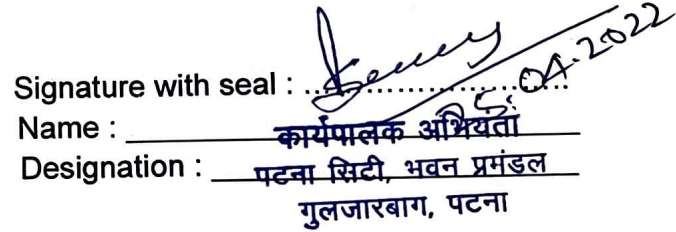 Signature with seal : ........................
5.04.2022
Name : कार्यपालक अभियंता
Designation : पटना सिटी, भवन प्रमंडल
गुलजारबाग, पटना